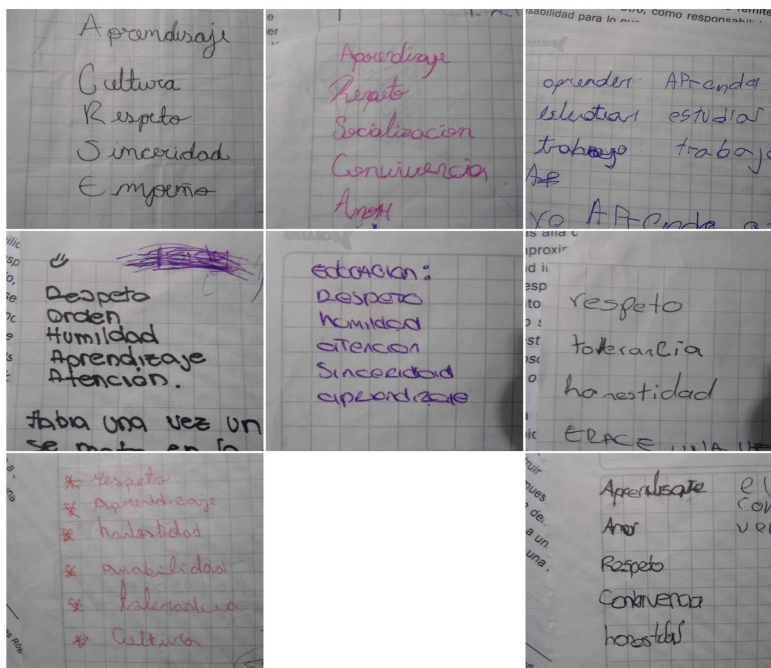 Aprendisaje
Cultura
Respeto
Sinceridad
Empeño
Aprendizaje
Respeto
Socialización
Convivencia
Amor
sabilidad para lo
otro, como responsabili
aprender APrenda
estudiar estudiar
trabajo trabajo
AP
yo APrenda
Respeto
Orden
Humildad
Aprendizaje
Atención.
Había una vez un
se en la
educacion:
Respeto
humildad
atencion
Sinceridad
aprendizaje
respeto
tolerancia
honestidad
ERACE UNA
* respeto
* aprendizaje
* honestidad
* amabilidad
* tolerancia
* Cultura
Aprendisaje
Amor
Respeto
Convivencia
honestidad